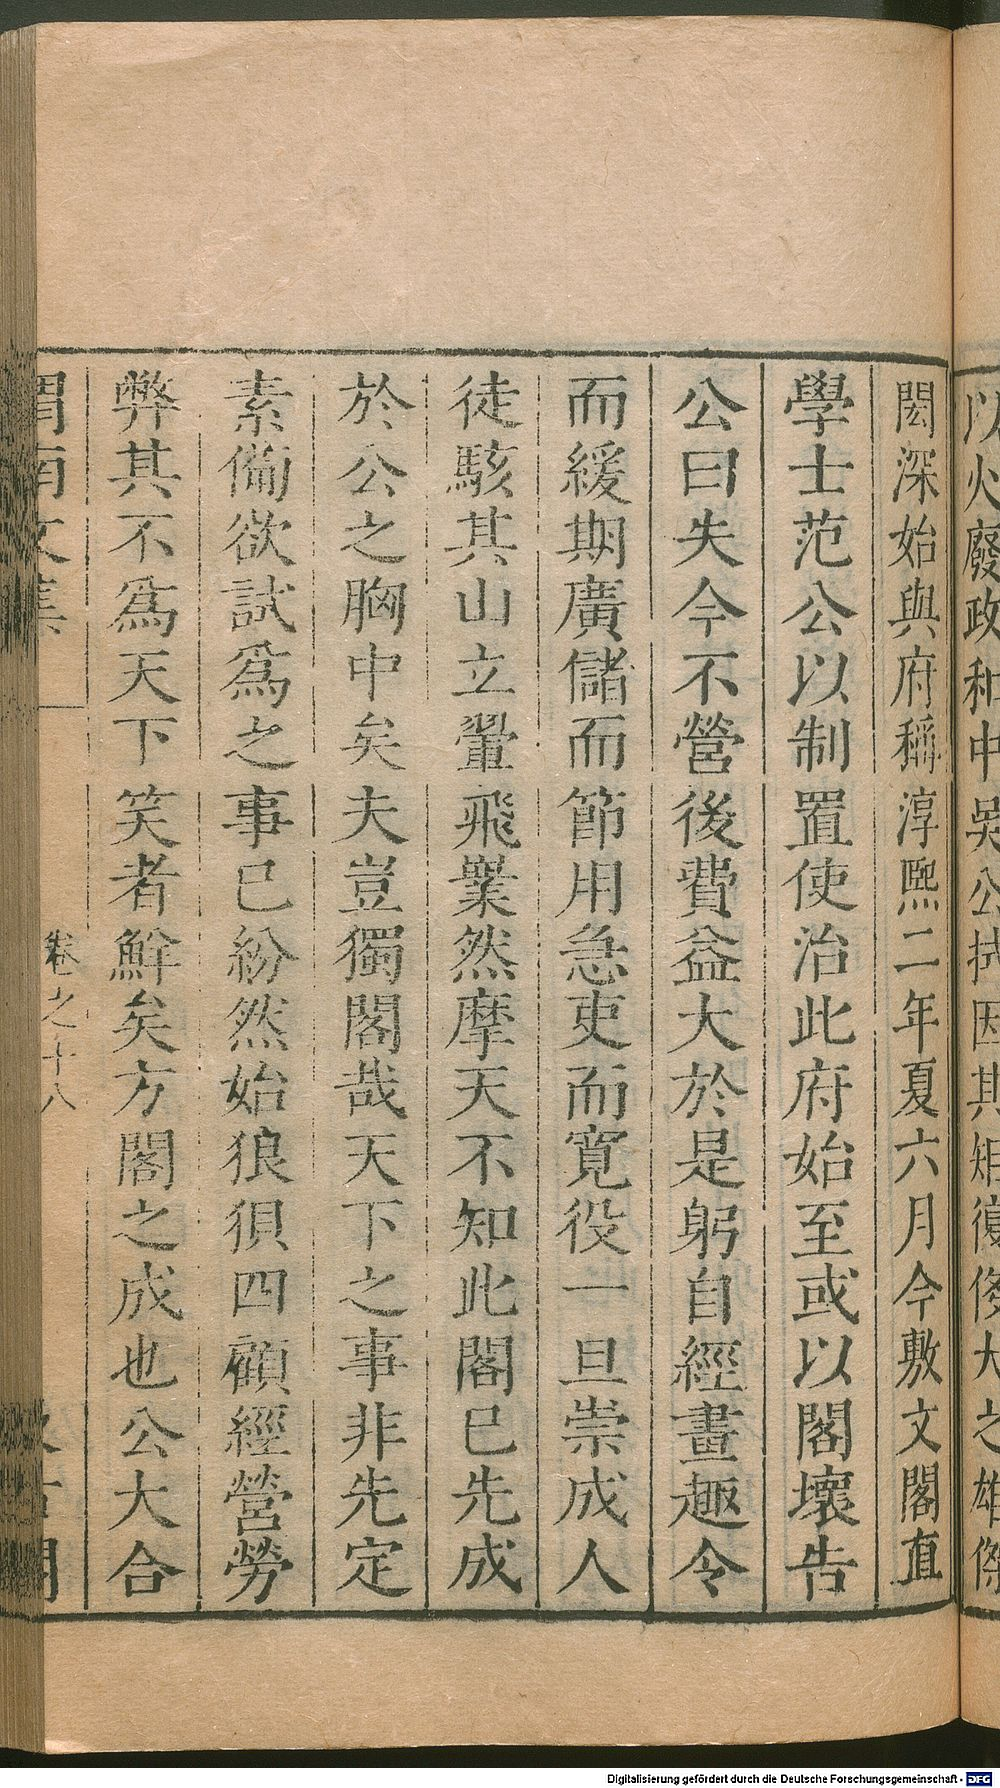 以火廢政和中吳公拭因其矩復脩大之雄傑
閎深始與府稱淳熙二年夏六月今敷文閣直
學士范公以制置使治此府始至或以閣壞告
公曰失今不營後費益大於是躬自經畫趣令
而緩期廣儲而節用急吏而寬役一旦崇成人
徒駭其山立翬飛嶪然摩天不知此閣已先成
於公之胸中矣夫豈獨閣哉天下之事非先定
素備欲試爲之事已紛然始狼狽四顧經營勞
弊其不爲天下笑者鮮矣方閣之成也公大合
渭南文集 卷之十八 汲古閣
Digitalisierung gefördert durch die Deutsche Forschungsgemeinschaft - DFG